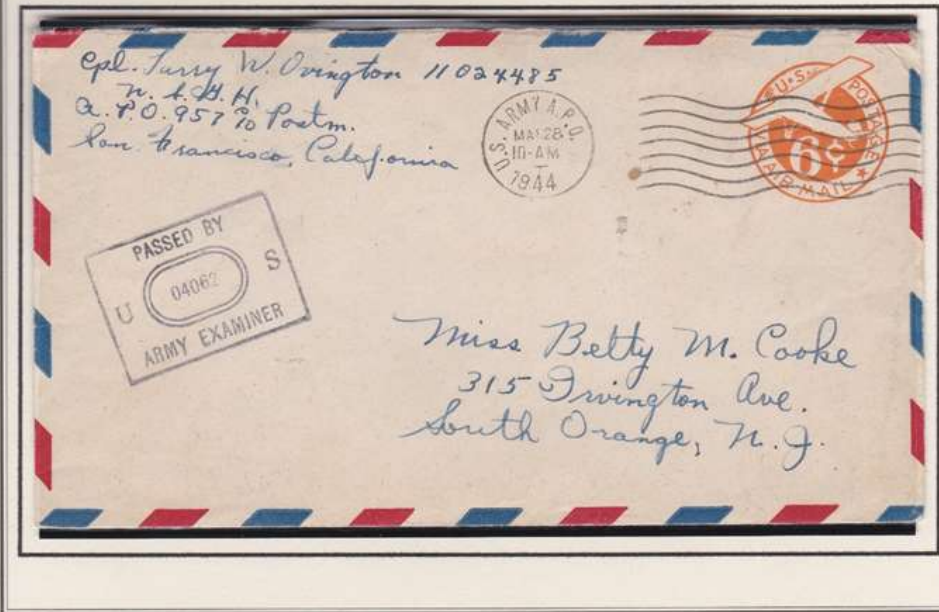 Cpl. W. Ovington 11024485
A.P.O. 957 c/o Postm.
San Francisco, California
U.S. ARMY A.P.O.
28
10-AM
1944
U.S. POSTAGE
6¢
VIA AIR MAIL
PASSED BY
U 04062 S
ARMY EXAMINER
Miss Betty M. Cooke
315 Irvington Ave.
South Orange, N.J.